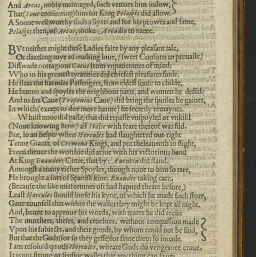 And Arcas, nobly mannaged, such vertues him indow,
That (our consenting) him for King Pelasgis did allow.
A Sonne well worthy such a Syer: and for his prowes and fame,
Pelasgis then, of Arcas, tooke Arcadia to name.
BVt neither might these Ladies faire by any pleasant tale,
Or dazeling toyes of making loue, (sweet Consorts to preuaile)
Disswade outragious Cacus from repentures of mine.
Who in his great tyrannies did cheefest pleasure finde.
He slue the harmles Passengers, from eldest sorte to childe,
He burnes and spoyles the neighbour parts, and women he defild.
And to his Caue (Troponius Caue) did bring the spoiles he gaines,
In which (except to doe more harme) he secretly remaynes.
Whilst none did passe, that did repasse vnspoyled or vnkild
(None knowing how) all Italie with feare thereof was fild.
But, so as before when Hercules had slaughtered out right
Tenne Giants, of Cremona Kings, and put the leauenth to flight,
From thence the worthie did ariue with his victorious band
At King Euanders Cittie, that by Auentin did stand.
Amongst a many richer Spoyles, though none to him so rare,
He brought a sort of Spanish kine. Euander taking care,
(Because the like misfortunes oft had hapned theare before)
Least Hercules should loose his kyne, of which he made such store,
Gaue counsell that within the walles they might be kept all night.
And, better to approue his words, with teares he did recite
The murthers, thefts, and cruelties, without compassion made
Vpon his subiects, and their goods, by whom could not be said,
But that the Gods for so they gesse for sinne them so inuade.
I am resolu'd quoth Hercules, wheare Gods do vengeance craue,
It is not strong or sensiue wallles that any thing can saue.